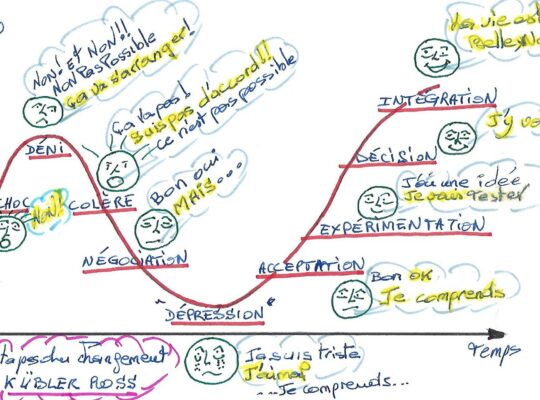 NON! Et NON!!
Non Pas Possible
ça va s'arranger!
Ça va pas!
suis pas d'accord!!
ce n'est pas possible
La vie est
Belle
INTÉGRATION
J'y
DÉNI
DÉCISION
CHOC
NON!
COLÈRE
Bon oui
MAIS...
J'ai une idée
Je vais Tester
EXPÉRIMENTATION
NÉGOCIATION
ACCEPTATION
Bon OK
Je comprends
"DÉPRESSION"
Temps
changement
KÜBLER ROSS
Je suis triste
J'ai mal
...Je comprends...